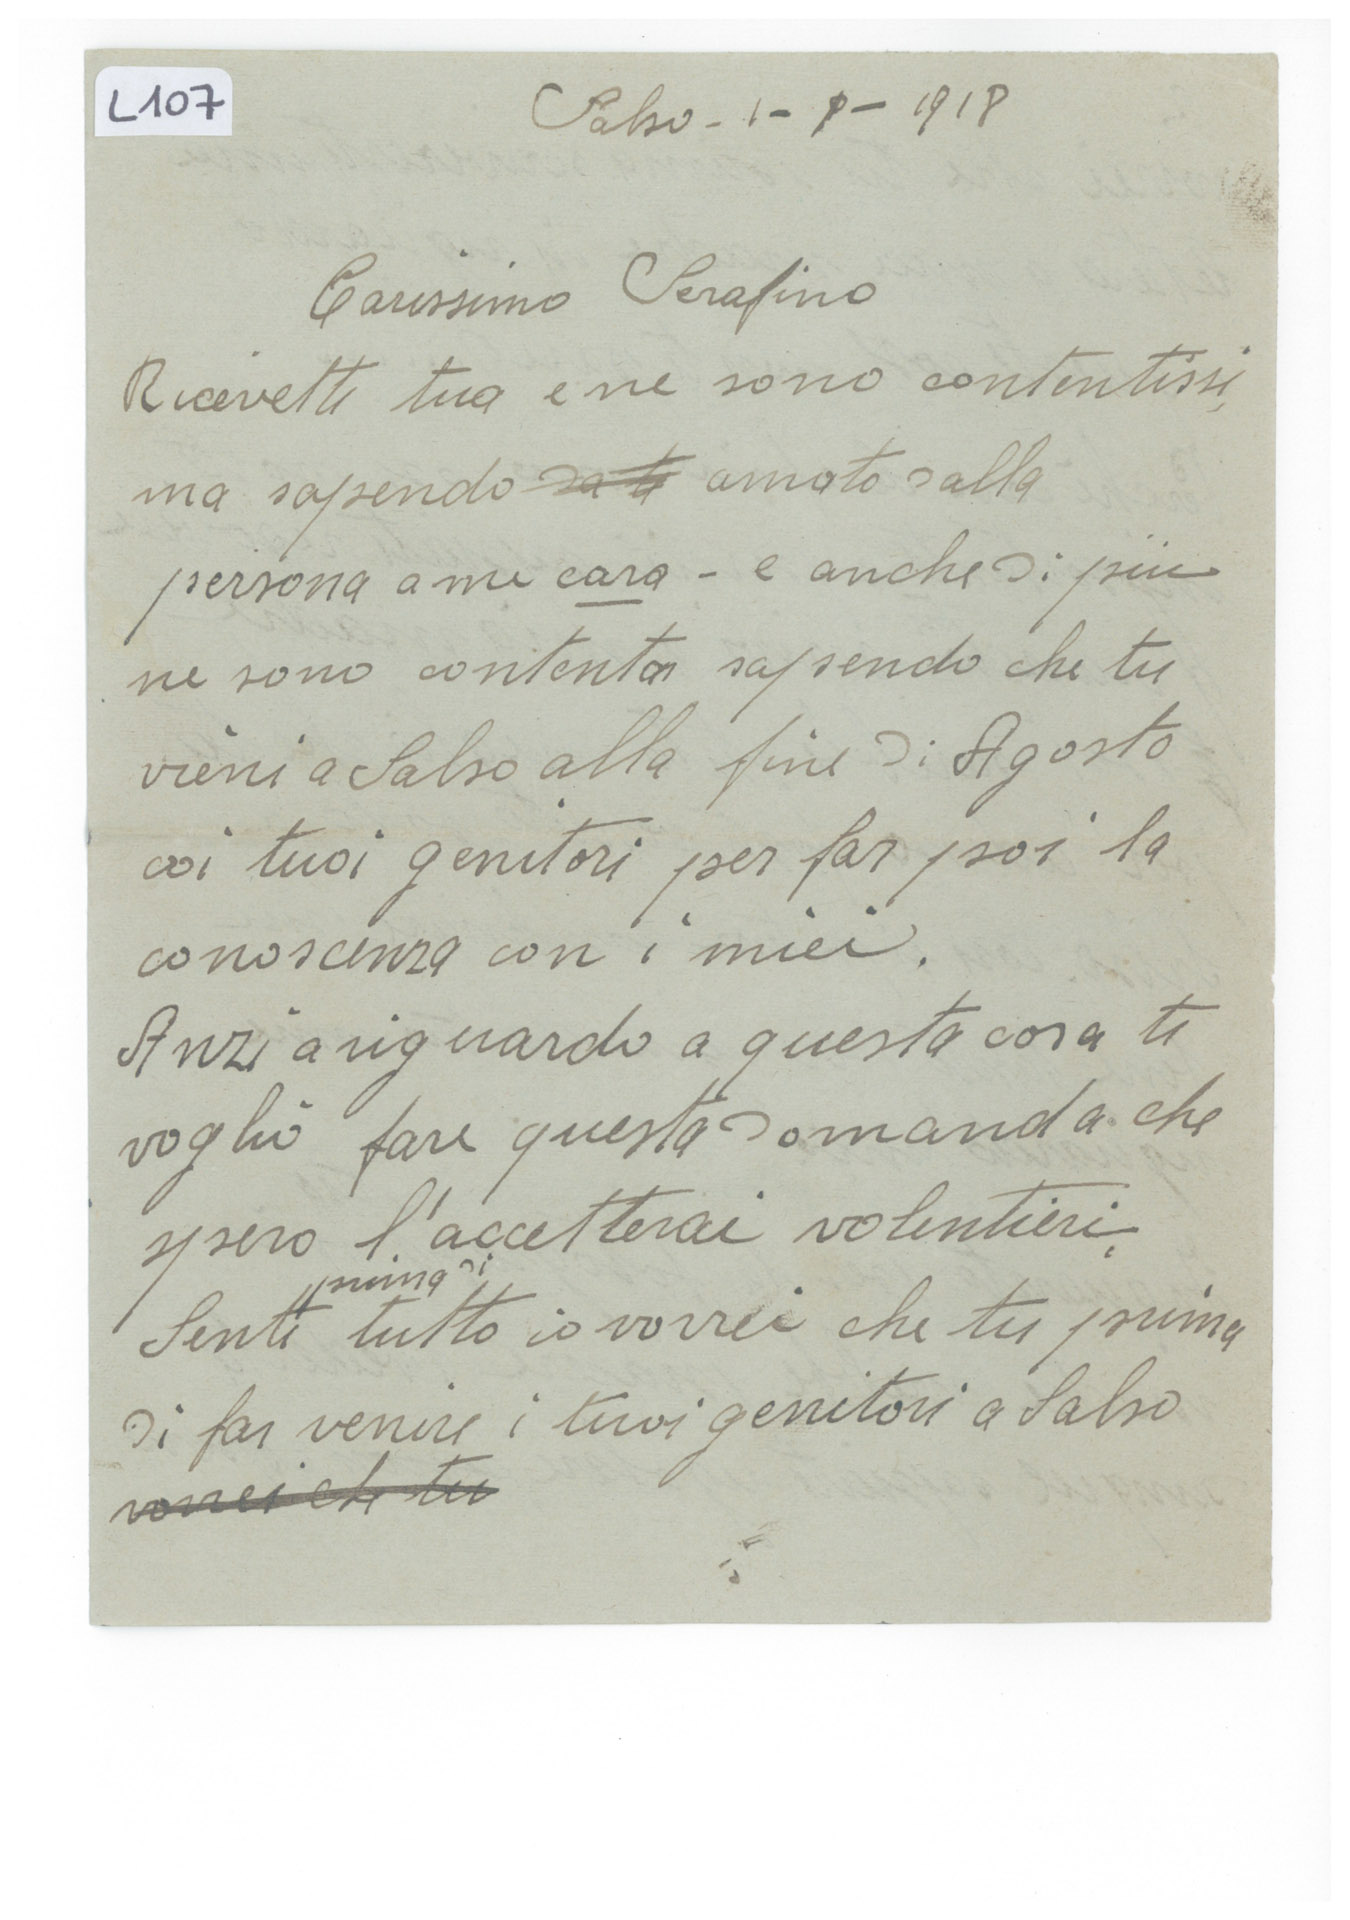 L107
Salso - 1 - 8 - 1918
Carissimo Serafino
Ricevetti tua e ne sono contentissi,
ma sapendo da te amato dalla
persona a me cara - e anche di più
ne sono contenta sapendo che tu
vieni a Salso alla fine di Agosto
coi tuoi genitori per far poi la
conoscenza con i miei.
Anzi a riguardo a questa cosa ti
voglio fare questa domanda che
spero l'accetterai volentieri,
prima di
Senti tutto io vorrei che tu prima
di far venire i tuoi genitori a Salso
vorrei che tu